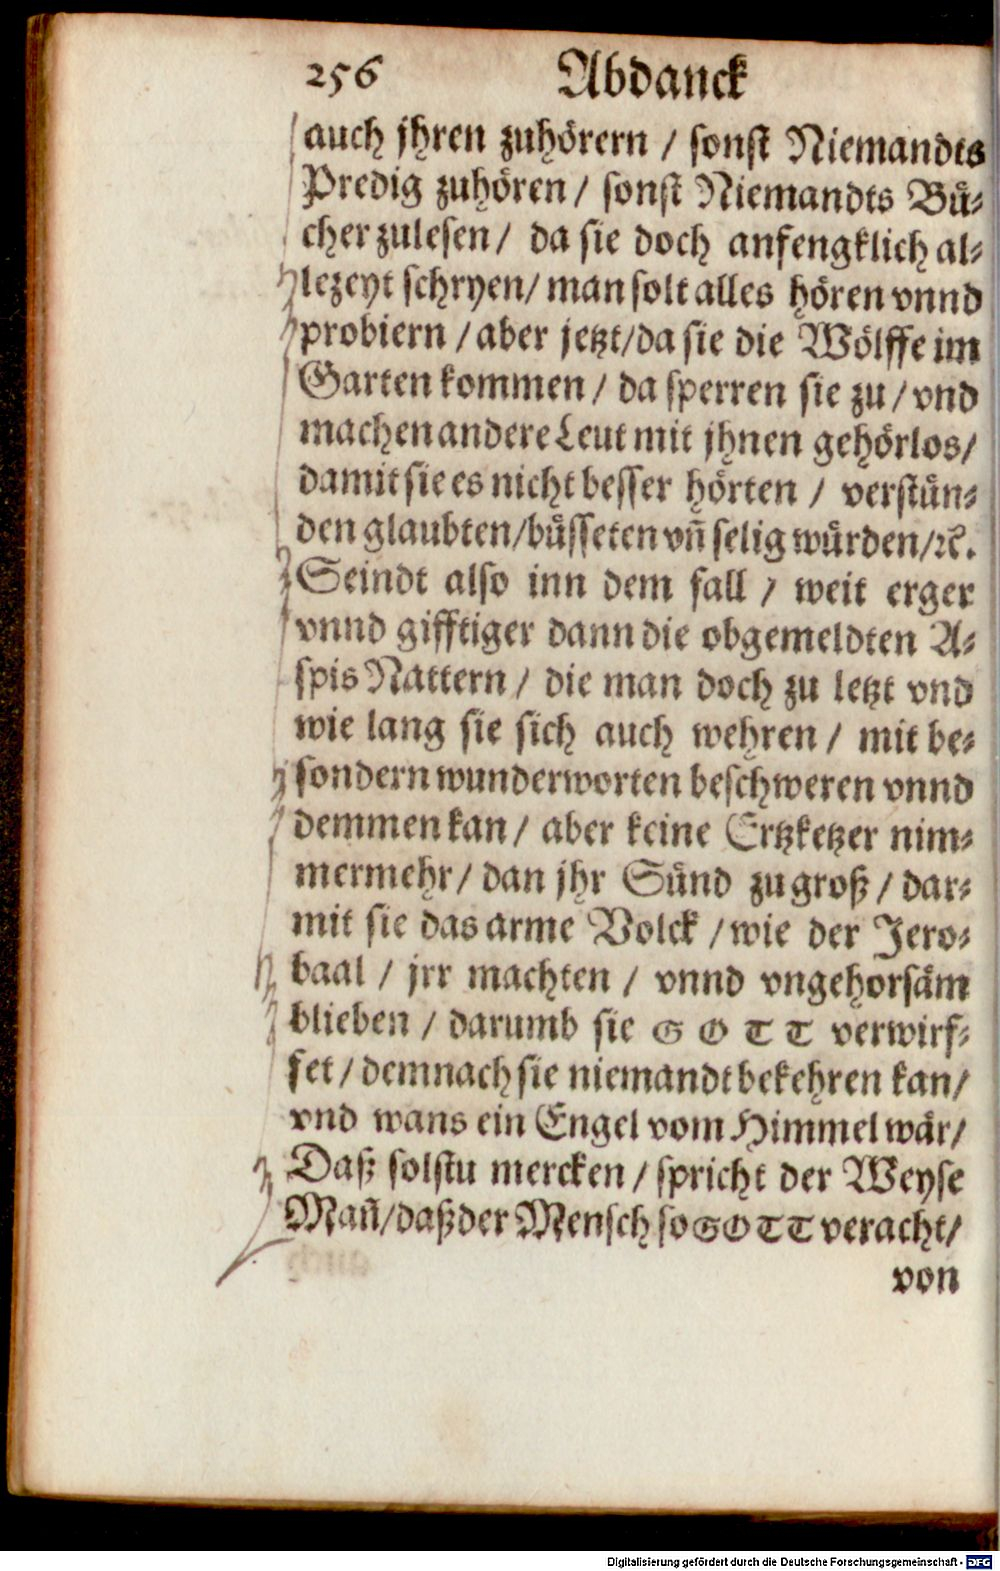 256 Abdanck
auch jhren zuhörern / sonst Niemandts
Predig zuhören / sonst Niemandts Bü-
cher zulesen / da sie doch anfengklich al-
lezeyt schryen / man solt alles hören vnnd
probiern / aber jetzt / da sie die Wölffe im
Garten kommen / da sperren sie zu / vnd
machen andere Leut mit jhnen gehörlos /
damit sie es nicht besser hörten / verstün-
den glaubten / büsseten vñ selig würden / ꝛc.
Seindt also inn dem fall / weit erger
vnnd gifftiger dann die obgemeldten A-
spis Nattern / die man doch zu letzt vnd
wie lang sie sich auch wehren / mit be-
sondern wunderworten beschweren vnnd
demmen kan / aber keine Ertzketzer nim-
mermehr / dan jhr Sünd zu groß / dar-
mit sie das arme Volck / wie der Jero-
baal / jrr machten / vnnd vngehorsäm
blieben / darumb sie GOTT verwirf-
fet / demnach sie niemandt bekehren kan /
vnd wans ein Engel vom Himmel wär /
Daß solstu mercken / spricht der Weyse
Mañ / daß der Mensch so GOTT veracht /
von
Digitalisierung gefördert durch die Deutsche Forschungsgemeinschaft - DFG